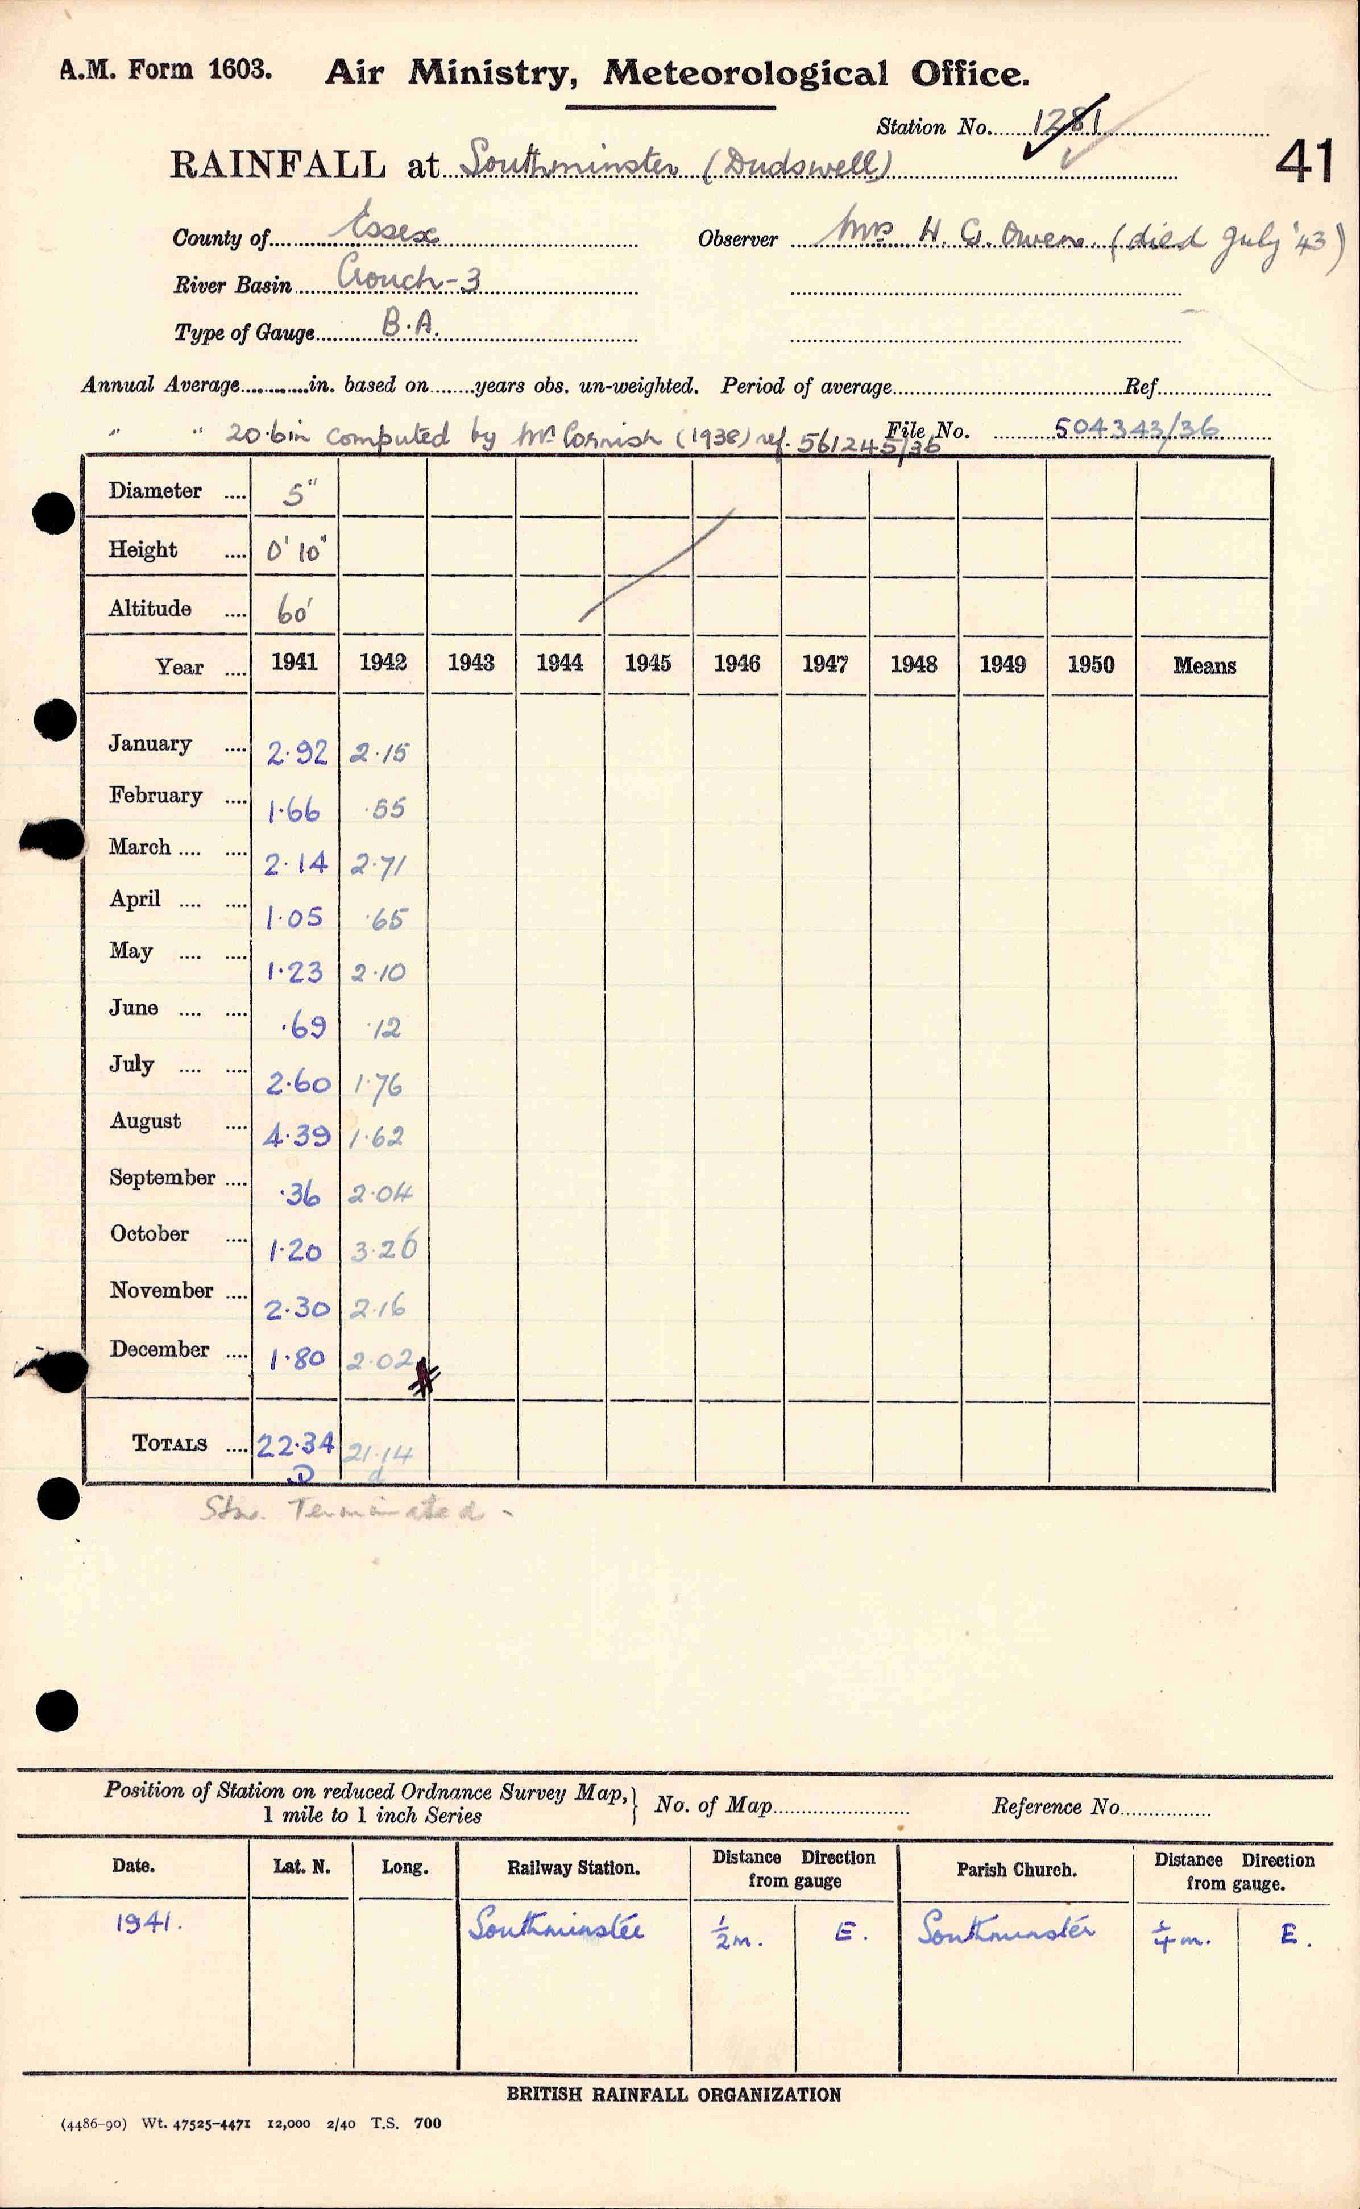 A.M. Form 1603. Air Ministry, Meteorological Office.
Station No. 1281
RAINFALL at Southminster (Dudswell) 41
County of Essex Observer Mrs H. G. Owen. (died July '43)
River Basin Crouch-3
Type of Gauge B.A.
Annual Average............in. based on.......years obs. un-weighted. Period of average........Ref........
" " 20.6in computed by Mr Cornish (1938) ref. 561245/36 File No. 504343/36
Diameter .... 5"
Height .... 0' 10"
Altitude .... 60'
Year .... 1941 1942 1943 1944 1945 1946 1947 1948 1949 1950 Means
January .... 2.92 2.15
February .... 1.66 .55
March .... .... 2.14 2.71
April .... .... 1.05 .65
May .... .... 1.23 2.10
June .... .... .69 .12
July .... .... 2.60 1.76
August .... 4.39 1.62
September .... .36 2.04
October .... 1.20 3.26
November .... 2.30 2.16
December .... 1.80 2.02
TOTALS .... 22.34 21.14
D d
Stn. Terminated -
Position of Station on reduced Ordnance Survey Map,} No. of Map........ Reference No........
1 mile to 1 inch Series
Date. Lat. N. Long. Railway Station. Distance Direction from gauge Parish Church. Distance Direction from gauge.
1941. Southminster 1/2 m. E. Southminster 1/4 m. E.
BRITISH RAINFALL ORGANIZATION
(4486-90) Wt. 47525-4471 12,000 2/40 T.S. 700